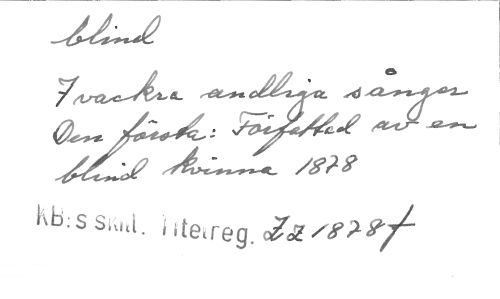 blind
7 vackra andliga sånger
Den första: Författad av en
blind kvinna 1878
KB:s skill. Titelreg. Zz 1878 f